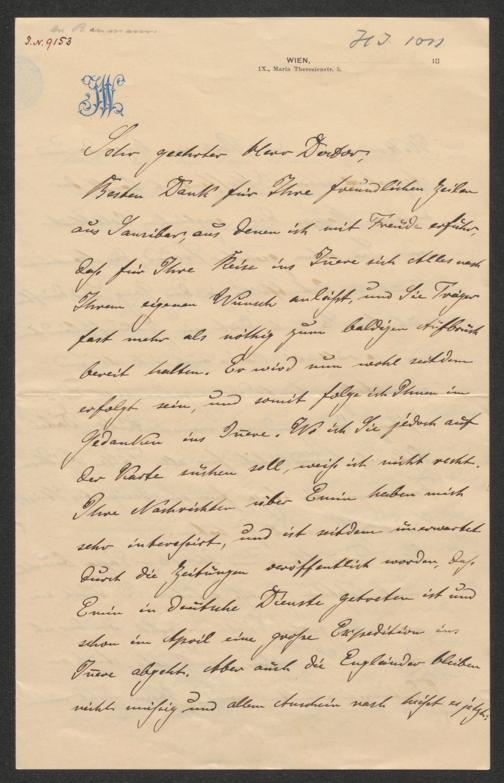 an Baumann
I.N. 9153
WIEN,
IX., Maria Theresienstr. 5.
18
JW
Sehr geehrter Herr Doctor,
Besten Dank für Ihre freundlichen Zeilen
aus Sansibar, aus denen ich mit Freude erfuhr,
daß für Ihre Reise ins Innere sich Alles nach
Ihrem eigenen Wunsch anläßt, und Sie Träger
fast mehr als nöthig zum baldigen Aufbruch
bereit halten. Er wird nun wohl seitdem
erfolgt sein, und somit folge ich Ihnen im
Gedanken ins Innere. Wo ich Sie jedoch auf
der Karte suchen soll, weiß ich nicht recht.
Ihre Nachrichten über Emin haben mich
sehr interessirt, und ist seitdem unerwartet
durch die Zeitungen veröffentlich worden, daß
Emin in deutsche Dienste getreten ist und
schon im April eine große Expedition ins
Innere abgeht. Aber auch die Engländer bleiben
nicht müßig und allem Anschein nach heißt es jetzt,